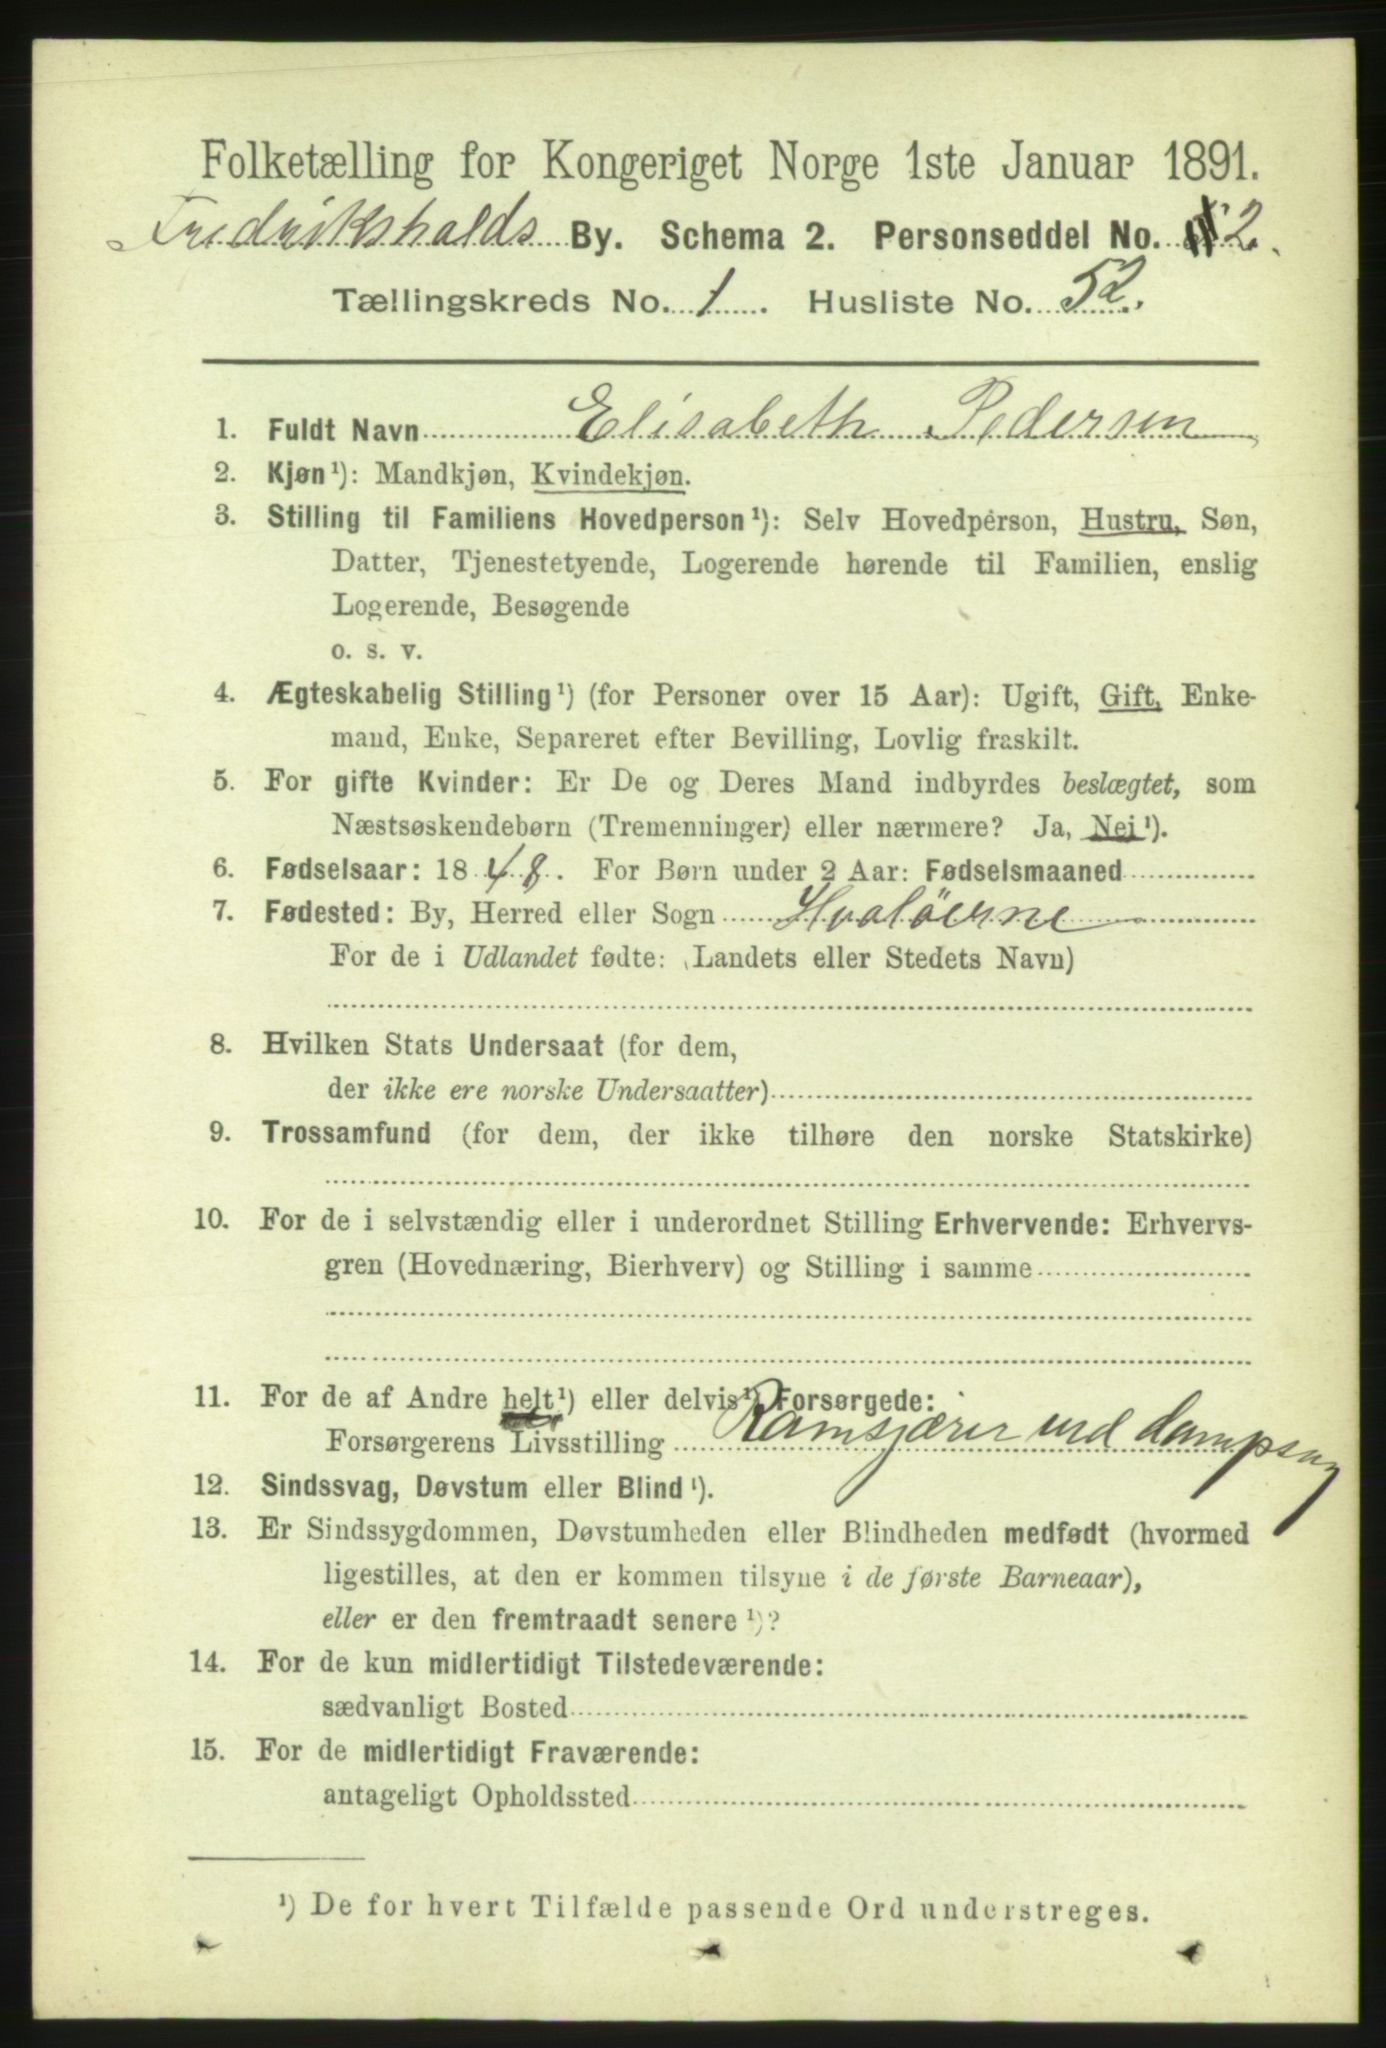 Folketælling for Kongeriget Norge 1ste Januar 1891.
Fredrikshalds By. Schema 2. Personseddel No. 2.
Tællingskreds No. 1. Husliste No. 52.
1. Fuldt Navn Elisabeth Pedersen
2. Kjøn¹): Mandkjøn, Kvindekjøn.
3. Stilling til Familiens Hovedperson¹): Selv Hovedperson, Hustru, Søn,
Datter, Tjenestetyende, Logerende hørende til Familien, enslig
Logerende, Besøgende
o. s. v.
4. Ægteskabelig Stilling¹) (for Personer over 15 Aar): Ugift, Gift, Enke-
mand, Enke, Separeret efter Bevilling, Lovlig fraskilt.
5. For gifte Kvinder: Er De og Deres Mand indbyrdes beslægtet, som
Næstsøskendebørn (Tremenninger) eller nærmere? Ja, Nei¹).
6. Fødselsaar: 1848. For Børn under 2 Aar: Fødselsmaaned
7. Fødested: By, Herred eller Sogn Hvaløerne
For de i Udlandet fødte: (Landets eller Stedets Navn)
8. Hvilken Stats Undersaat (for dem,
der ikke ere norske Undersaatter)
9. Trossamfund (for dem, der ikke tilhøre den norske Statskirke)
10. For de i selvstændig eller i underordnet Stilling Erhvervende: Erhvervs-
gren (Hovednæring, Bierhverv) og Stilling i samme
11. For de af Andre helt¹) eller delvis¹) Forsørgede:
Forsørgerens Livsstilling Ramskjærer ved dampsag
12. Sindssvag, Døvstum eller Blind¹).
13. Er Sindssygdommen, Døvstumheden eller Blindheden medfødt (hvormed
ligestilles, at den er kommen tilsyne i de første Barneaar),
eller er den fremtraadt senere¹)?
14. For de kun midlertidigt Tilstedeværende:
sædvanligt Bosted
15. For de midlertidigt Fraværende:
antageligt Opholdssted
¹) De for hvert Tilfælde passende Ord understreges.